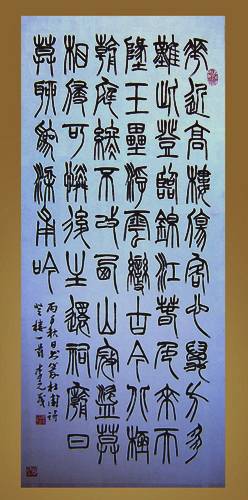 花近高樓傷客心萬方多
難此登臨錦江春色來天
地玉壘浮雲變古今北極
朝廷終不改西山寇盜莫
相侵可憐後主還祠廟日
莫聊為梁甫吟
丙戌秋日書篆杜甫詩
登樓一首